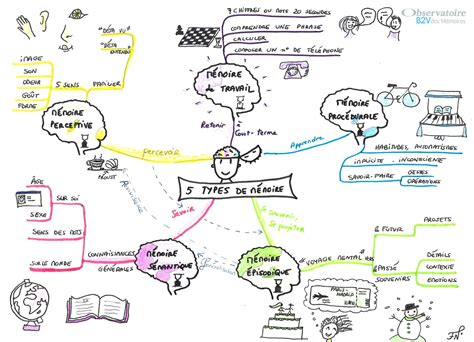 Observatoire
B2V des Mémoires
7 CHIFFRES OU MOTS 20 SECONDES
COMPRENDRE UNE PHRASE
CALCULER
COMPOSER UN N° DE TÉLÉPHONE
MÉMOIRE
de
TRAVAIL
Retenir
Court-terme
"DÉJÀ VU"
"DÉJÀ
ENTENDU"
IMAGE
SON
ODEUR
GOÛT
FORME
5 SENS
FAMILIER
MÉMOIRE
PERCEPTIVE
percevoir
PROUST
MÉMOIRE
PROCÉDURALE
Apprendre
HABITUDES AUTOMATISMES
IMPLICITE
INCONSCIENTE
SAVOIR-FAIRE
GESTES
OPÉRATIONS
5 TYPES DE MÉMOIRE
Savoir
MÉMOIRE
SÉMANTIQUE
CONNAISSANCES
GÉNÉRALES
ÂGE
SEXE
SUR SOI
SENS DES MOTS
SUR LE MONDE
Se projeter
MÉMOIRE
ÉPISODIQUE
VOYAGE MENTAL
FUTUR
PROJETS
PASSÉ
SOUVENIRS
DÉTAILS
CONTEXTE
ÉMOTIONS
PARIS
MADRID